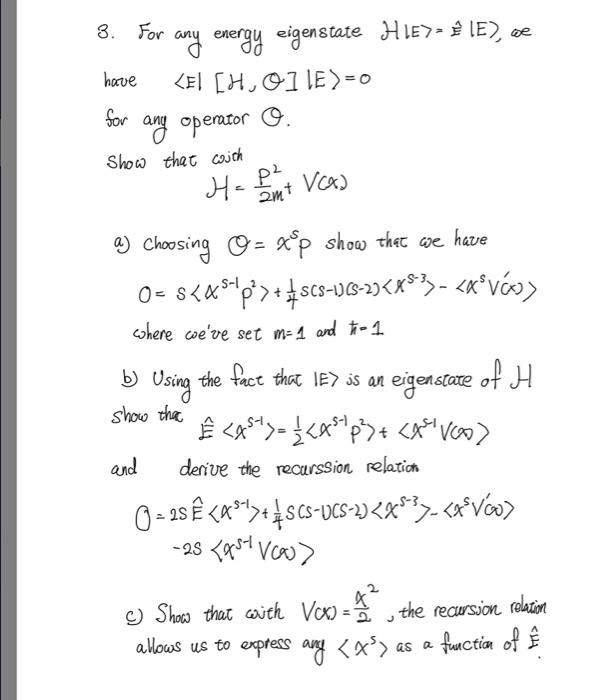 3. For any energy eigenstate H|E> = Ê|E>, we
have <E|[H, O]|E> = 0
for any operator O.
Show that with
H = p²/2m + V(x)
a) Choosing O = xˢp show that we have
0 = s<xˢ⁻¹p²> + 1/4 s(s-1)(s-2)<xˢ⁻³> - <xˢV'(x)>
where we've set m=1 and ħ=1
b) Using the fact that |E> is an eigenstate of H
show that Ê<xˢ⁻¹> = 1/2<xˢ⁻¹p²> + <xˢ⁻¹V(x)>
and derive the recurssion relation
0 = 2sÊ<xˢ⁻¹> + 1/4 s(s-1)(s-2)<xˢ⁻³> - <xˢV'(x)>
-2s <xˢ⁻¹V(x)>
c) Show that with V(x) = x²/2, the recursion relation
allows us to express any <xˢ> as a function of Ê